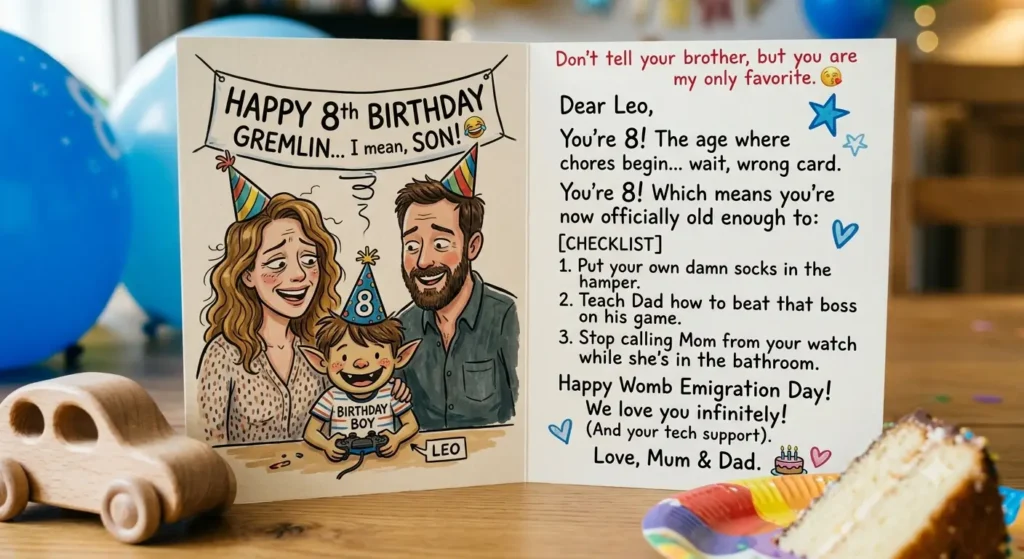 HAPPY 8th BIRTHDAY
GREMLIN... I mean, SON! 😂
8
BIRTHDAY
BOY
LEO
Don't tell your brother, but you are
my only favorite. 😘
Dear Leo,
You're 8! The age where
chores begin... wait, wrong card.
You're 8! Which means you're
now officially old enough to:
[CHECKLIST]
1. Put your own damn socks in the
hamper.
2. Teach Dad how to beat that boss
on his game.
3. Stop calling Mom from your watch
while she's in the bathroom.
Happy Womb Emigration Day!
We love you infinitely!
(And your tech support).
Love, Mum & Dad.